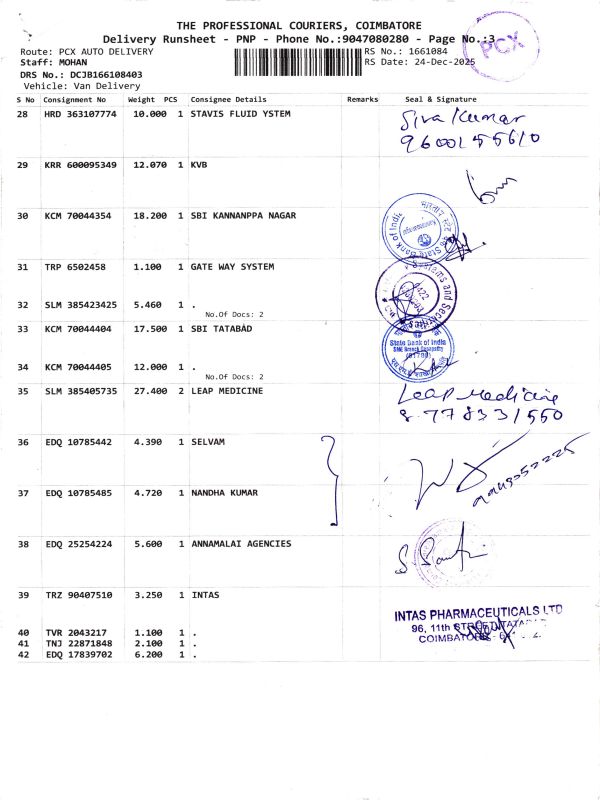 THE PROFESSIONAL COURIERS, COIMBATORE
Delivery Runsheet - PNP - Phone No.:9047080280 - Page No.:3
PCX
Route: PCX AUTO DELIVERY
RS No.: 1661084
Staff: MOHAN
RS Date: 24-Dec-2025
DRS No.: DCJB166108403
Vehicle: Van Delivery
S No Consignment No Weight PCS Consignee Details Remarks Seal & Signature
28 HRD 363107774 10.000 1 STAVIS FLUID YSTEM
Siva Kumar
9600155610
29 KRR 600095349 12.070 1 KVB
30 KCM 70044354 18.200 1 SBI KANNANPPA NAGAR
State Bank of India
31 TRP 6502458 1.100 1 GATE WAY SYSTEM
32 SLM 385423425 5.460 1 .
No.Of Docs: 2
33 KCM 70044404 17.500 1 SBI TATABAD
State Bank of India
SME Branch
34 KCM 70044405 12.000 1 .
No.Of Docs: 2
35 SLM 385405735 27.400 2 LEAP MEDICINE
Leap Medicine
8778331550
36 EDQ 10785442 4.390 1 SELVAM
37 EDQ 10785485 4.720 1 NANDHA KUMAR
38 EDQ 25254224 5.600 1 ANNAMALAI AGENCIES
39 TRZ 90407510 3.250 1 INTAS
INTAS PHARMACEUTICALS LTD
96, 11th STREET
COIMBATORE
40 TVR 2043217 1.100 1 .
41 TNJ 22871848 2.100 1 .
42 EDQ 17839702 6.200 1 .